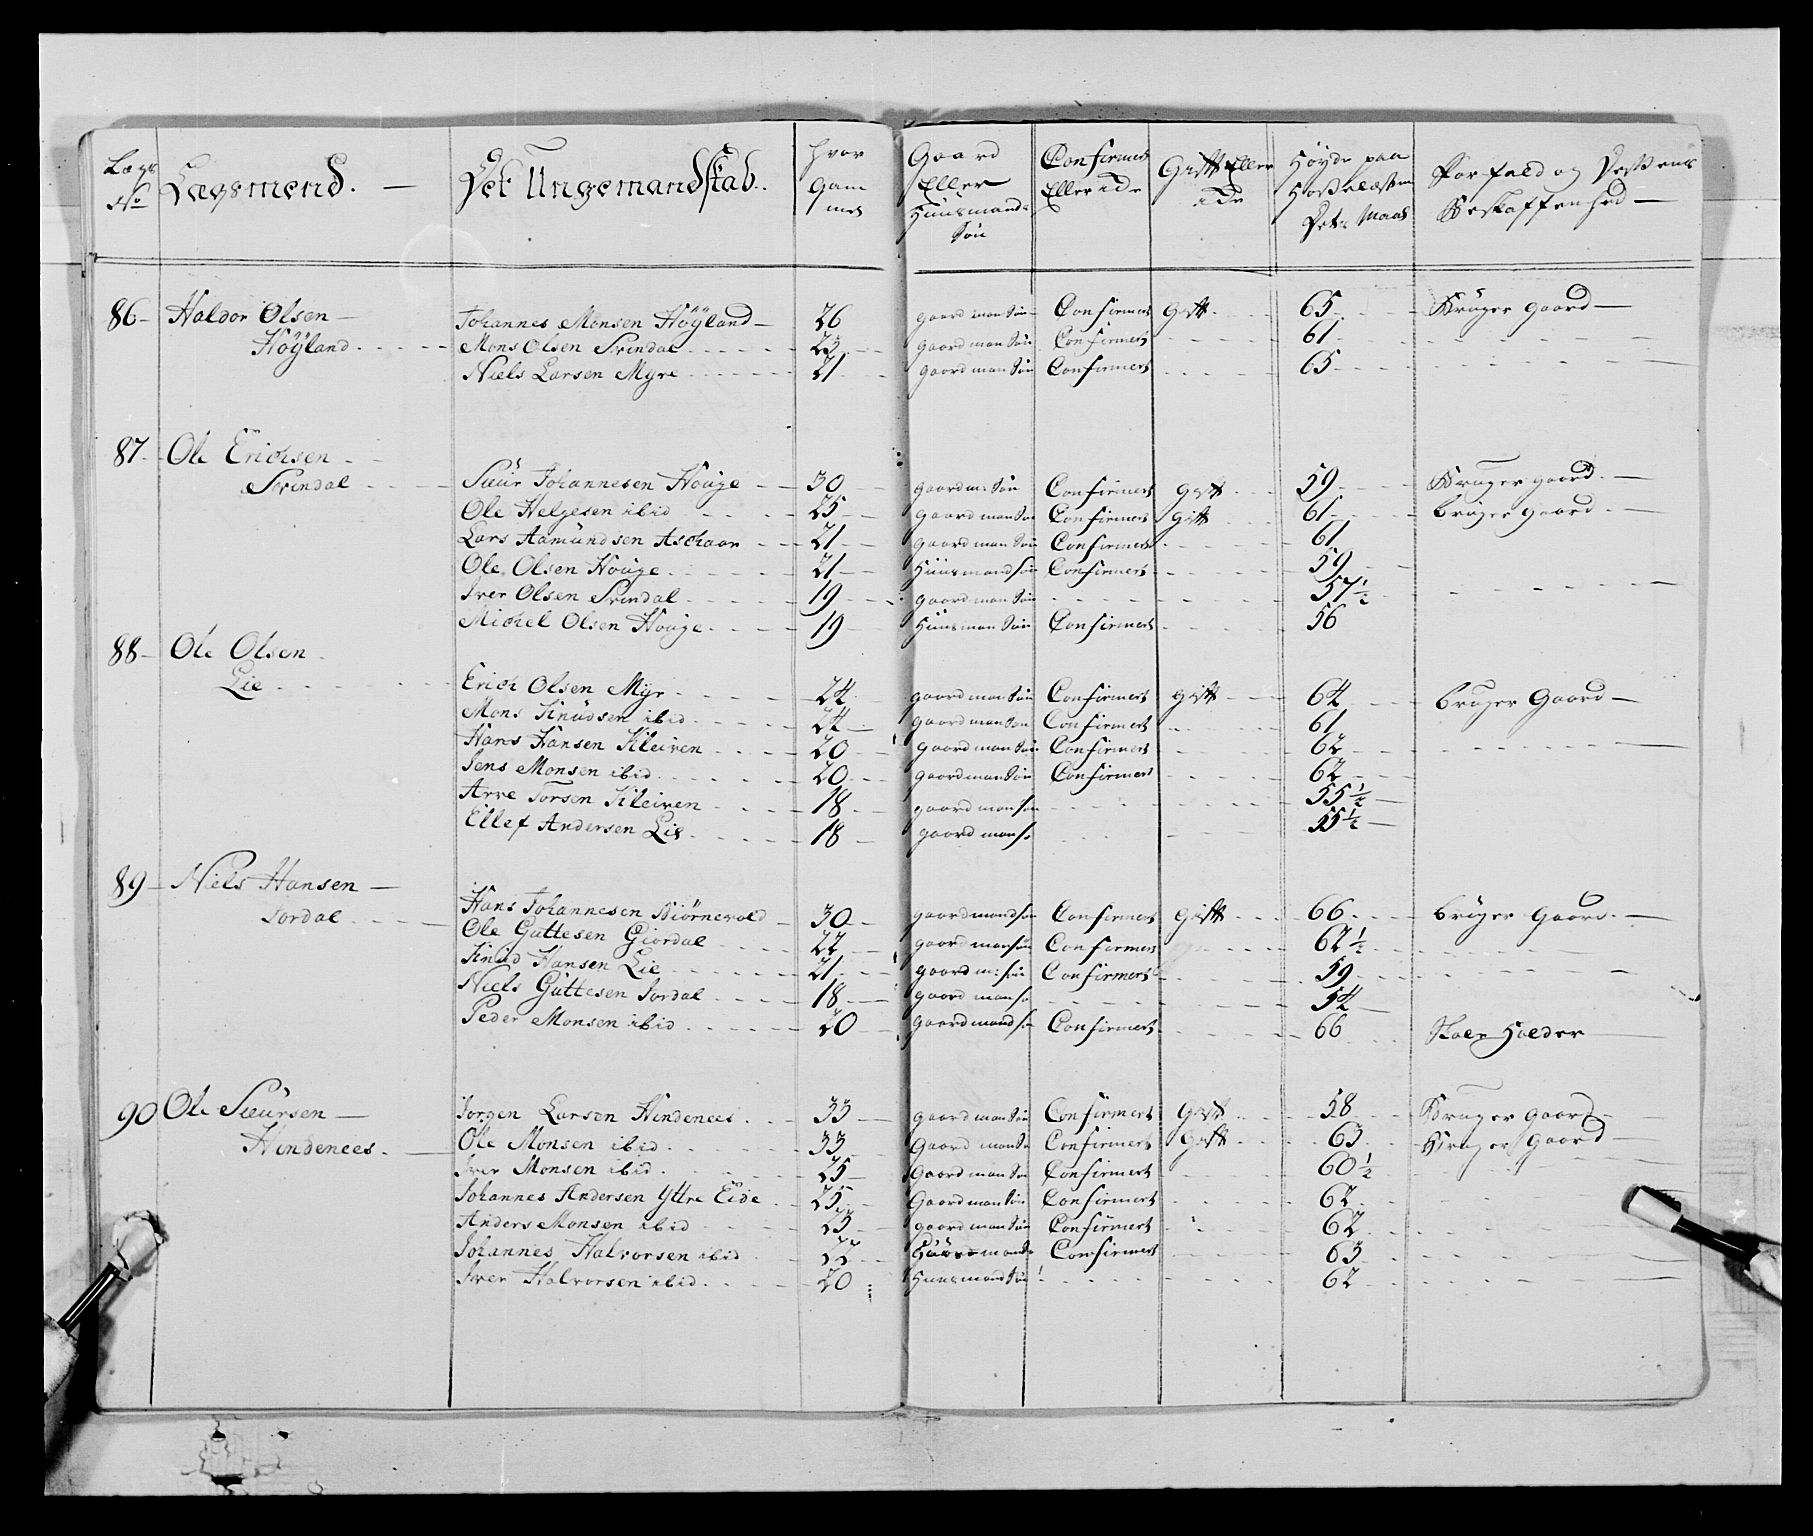 Lægs No Lægsmend. — Det Ungemandskab. hvor Gam mel Gaard Eller Huusmands Søn Confirmert Eller iDe Gift Eller iDe Høyde paa Hoselæsten Det Maal Forfald og Beskaffenhed —
86 – Haldor Olsen – Johannes Monsen Höyland – 26 gaard man Sön Confirmert gift 65 Bruger gaard —
Höyland Mons Olsen Svindal 23 gaard man Sön Confirmert 61
Niels Larsen Myre 21 gaard man Sön Confirmert 65
87 – Ole Erichsen
Svindal Siur Johannesen Houge – 30 gaard m: Sön Confirmert gift 59 Bruger gaard. —
Ole Helgesen ibid 25 gaard man Sön Confirmert gift 61 bruger gaard. —
Lars Aamundsen Aschaar 21 gaard man Sön Confirmert 61
Ole Olsen Houge 21 Huusmand sön Confirmert 59
Iver Olsen Svindal 19 gaard man Sön 57 1/2
Michel Olsen Houge 19 Huusman Sön Confirmert 56
88 – Ole Olsen
Lie Erich Olsen Myr 24 gaard man Sön Confirmert gift 64 bruger Gaard —
Mons Knudsen ibid 24 gaard man Sön Confirmert 61
Hans Hansen Kleiven 20 gaard man Sön Confirmert 62
Jens Monsen ibid 20 gaard man Sön Confirmert 62
Arve Torsen Kleiven 18 gaard man sön 55 1/2
Ellef Andersen Lie 18 gaard man sö 55 1/2
89 – Niels Hansen —
Jordal Hans Johannesen Biörnevold – 30 gaard mand sön Confirmert gift 66 bruger gaard. —
Ole Guttesen Giordal 22 gaard man sön Confirmert 62 1/2
Knud Hansen Lie 21 gaard m: sön Confirmert 59
Niels Guttesen Jordal 18 gaard man sö 54
Peder Monsen ibid 20 gaard mand sön Confirmert 66 Skole Holder
90 Ole Siursen — Jorgen Larsen Hindenees 33 gaard man Sön Confirmert gift 58 Bruger Gaard –
Hindenees. Ole Monsen ibid 33 Gaard man Sön Confirmert gift 63 Bruger Gaard
Iver Monsen ibid 25 gaard man Sön Confirmert 60 1/2
Johannes Andersen Yttre Eide 25 Gaard man Sön Confirmert 62
Anders Monsen ibid 23 gaard man Sön Confirmert 62
Johannes Halvorsen ibid 22 Huusmand Confirmert 63
Iver Halvorsen ibid 20 Huusmand Sön 62